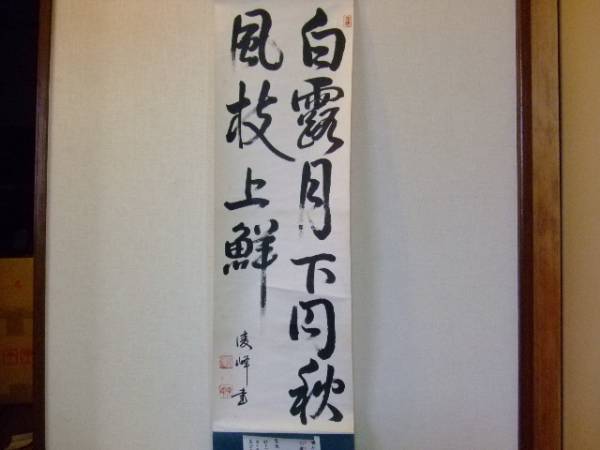 白露月下円秋
風枝上鮮
凌峰書